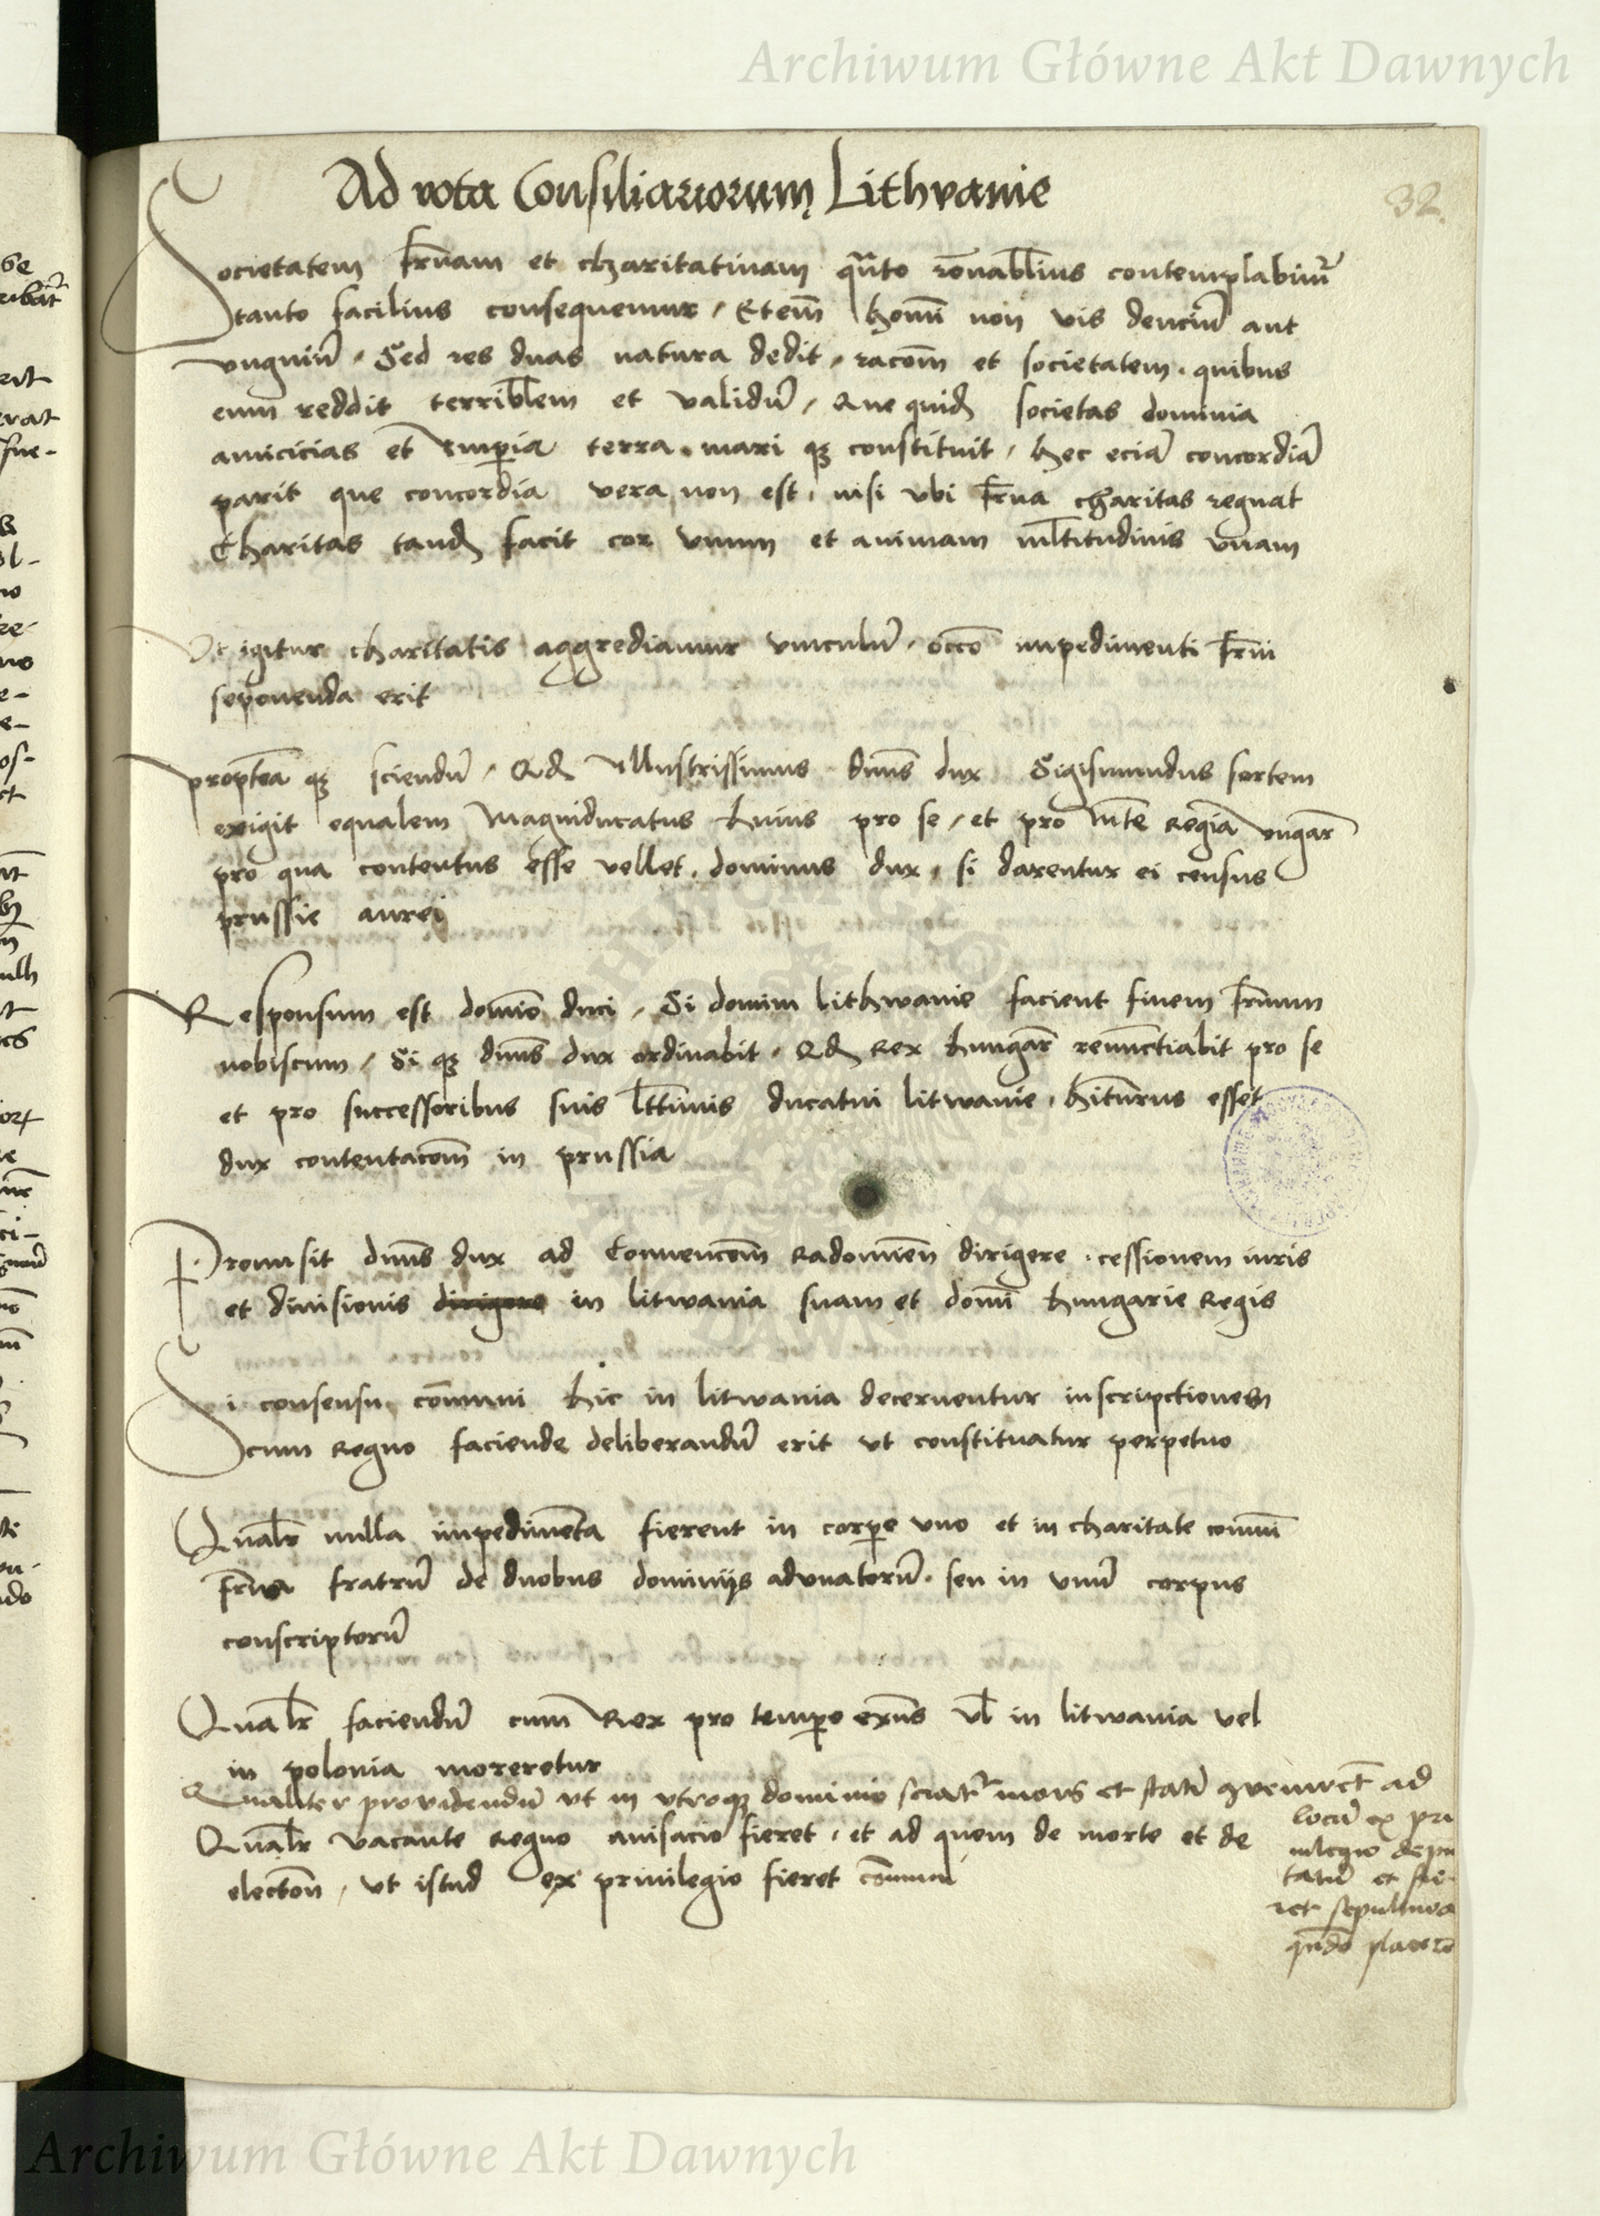 Archiwum Główne Akt Dawnych
32.
Ad vota Consiliariorum Lithvanie
Societatem fr̄nam et charitatiuam qn̄to rōnabl̄ius contemplabimr̄
tanto facilius consequemur, Etem̄ homī non vis denciū aut
vnguiū, Sed res duas natura dedit, racōm et societatem, quibus
eum reddit terribl̄em et validū, Que quid̄ societas dominia
amicicias et Imperia terra mari qꝫ constituit, hec eciā concordiā
parit que concordia vera non est, nisi vbi fr̄na charitas regnat
Charitas tand̄ facit cor vnum et animam ml̄titudinis vnam
Vt igitur charitatis aggrediamur vinculū, occō impedimenti fr̄ni
seponenda erit
Propt̄ea qꝫ sciendū, Qd̄ Illustrissimus dn̄s dux Sigismundus sortem
exigit equalem Magniducatus huius pro se, et pro Mt̄e Regia vngar̄
pro qua contentus esse vellet, dominus dux, si darentur ei census
prussie aurei
Responsum est domīo duci, Si domini lithwanie facient finem fr̄num
nobiscum, Si qꝫ dn̄s dux ordinabit, Qd̄ Rex hungar̄ renunctiabit pro se
et pro successoribus suis l̄ttimis ducatui litwanie, hīturus esset
dux contentacōm in prussia
Promisit dn̄s dux ad Conuencōm Radomien̄ dirigere cessionem iuris
et diuisionis dirigere in litwania suam et domī hungarie Regis
Si consensu cōmuni hic in litwania decernentur inscripctionem
cum Regno faciende deliberandū erit vt constituatur perpetuo
Qual̄r nulla impedimēta fierent in corpe vno et in charitate com̄ni
fr̄na fratrū de duobus dominijs advnatorū, seu in vnū corpus
conscriptorū
Qual̄r faciendū cum Rex pro tempe exn̄s vl̄ in litwania vel
in polonia moreretur
Qualiter providendū vt in vtroqꝫ dominio sciatr̄ mors et statī ꝯvenirēt ad
locū ex pri
uilegio depu
tatū et fie-
ret sepultura
qn̄do placer
Qual̄r vacante Regno auisacio fieret, et ad quem de morte et de
electōn, vt istud ex priuilegio fieret cōmuni
Archiwum Główne Akt Dawnych